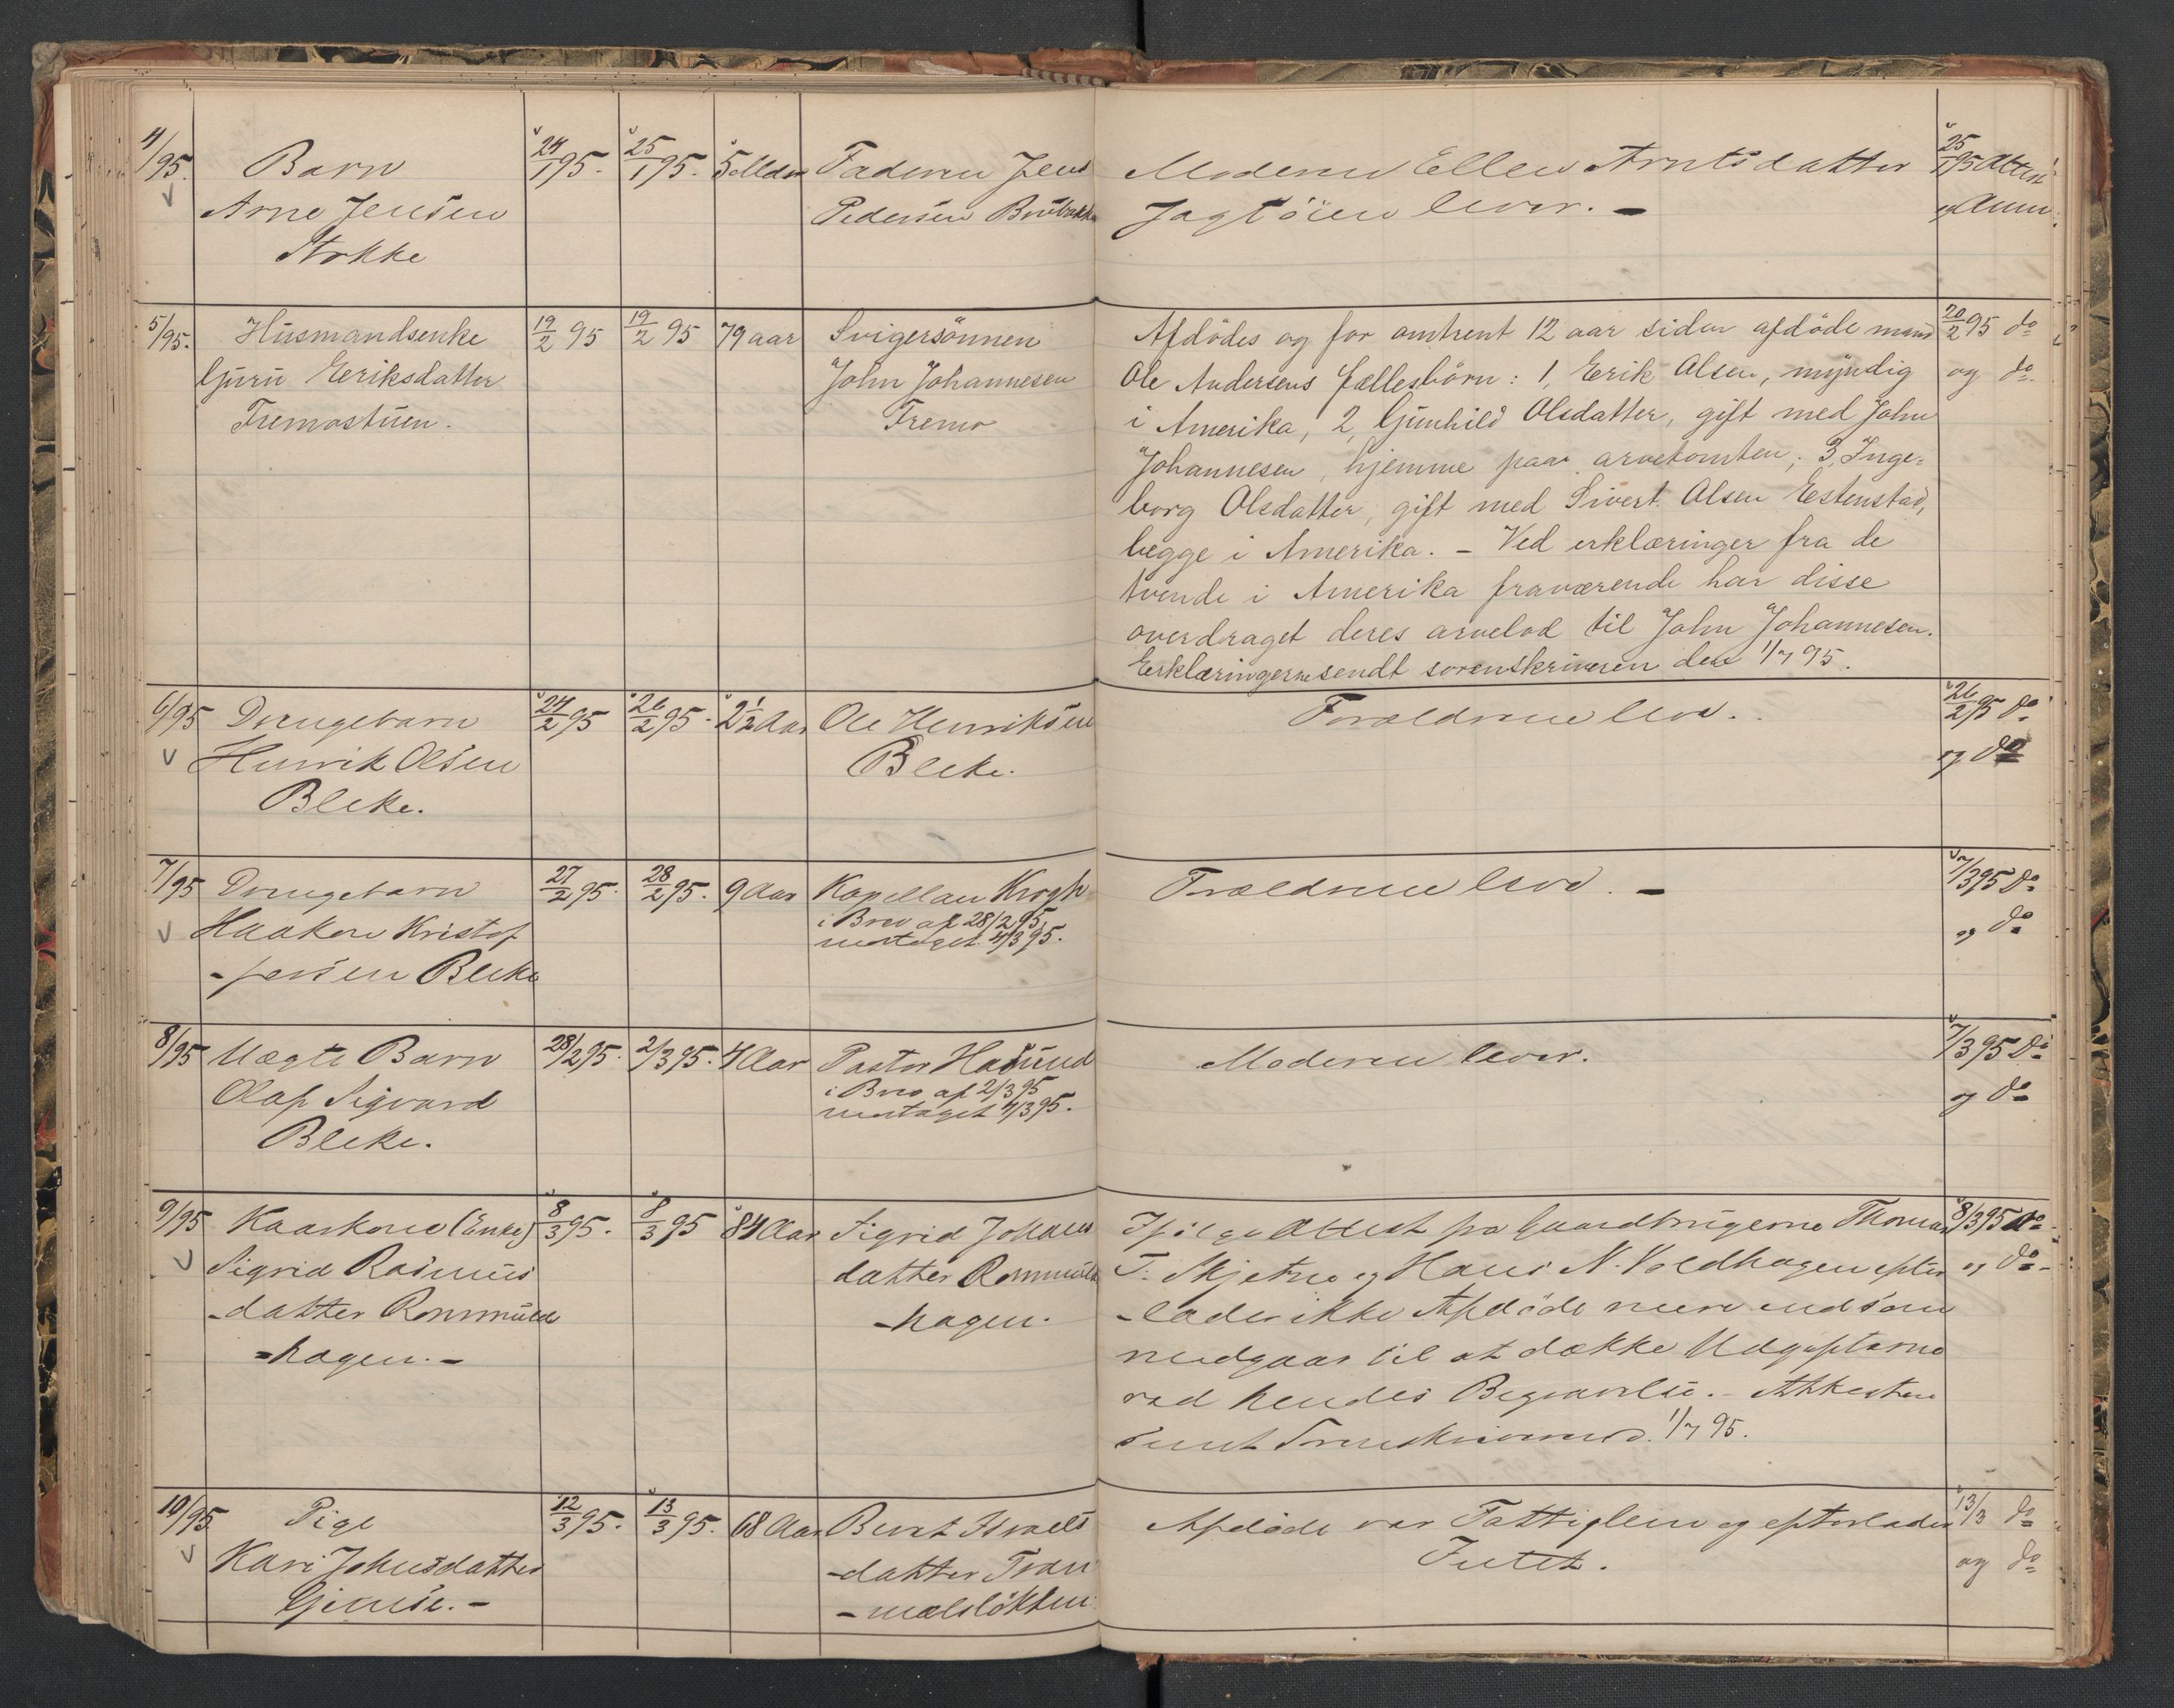 4/95. Barn 24/1 95. 25/1 95. 5 Mdr Faderen Jens Moderen Ellen Arntsdatter 25/1 95 Attest
Arne Jensen Pedersen Brubakken Jagtöien lever. - og Ann.
Stokke
5/95. Husmandsenke 19/2 95 19/2 95 79 aar Svigersönnen Afdödes og for omtrent 12 aar siden afdöde mand 20/2 95 do
Guru Eeriksdatter John Johannesen Ole Andersens fællesbörn: 1, Erik Olsen, myndig og do.
Tremostuen. Tremo i Amerika, 2, Gunhild Olsdatter, gift med John
Johannesen, hjemme paa arvetomten; 3, Inge-
borg Olsdatter, gift med Sivert Olsen Estenstad,
begge i Amerika. - Ved erklæringer fra de
tvende i Amerika fraværende har disse
overdraget deres arvelod til John Johannesen.
Erklæringerne sendt sorenskriveren den 1/7 95.
6/95 Drengebarn 24/2 95 26/2 95. 2 1/2 Aar Ole Henriksen Forældrene leve. 26/2 95 do
Henrik Olsen Bleke. og do
Bleke.
7/95 Drengebarn 27/2 95. 28/2 95. 9 Aar Kapellan Krogh Forældrene leve. - 7/3 95 do
Haaken Kristof i Brev af 28/2 95, og do
-fersen Bleke modtaget 4/3 95.
8/95 Uægte Barn 28/2 95. 2/3 95. 4 Aar Pastor Hasund Moderen lever. 7/3 95 do
Olaf Sigvard i Brev af 2/3 95 og do
Bleke. modtaget 4/3 95.
9/95 Kaarkone (Enke) 8/3 95. 8/3 95 84 Aar Sigrid Johans Ifölge Attest fra Gaardbrugerne Thomas 8/3 95 do
Sigrid Rasmus datter Rommuld T. Skjetne og Hans N. Voldhagen efter og do-
-datter Rommuld -hagen. -lader ikke Afdöde mere end som
-hagen.- medgaar til at dække Udgifterne
ved hendes Begravelse. - Attesten
sendt Sorenskriveren 1/7 95.
10/95. Pige 12/3 95. 13/3 95. 68 Aar Beret Israels Afdöde var Fattiglem og efterlader 13/3 do
Kari Johnsdatter -datter Tran Intet. og do
Gimse. - -mælslökken